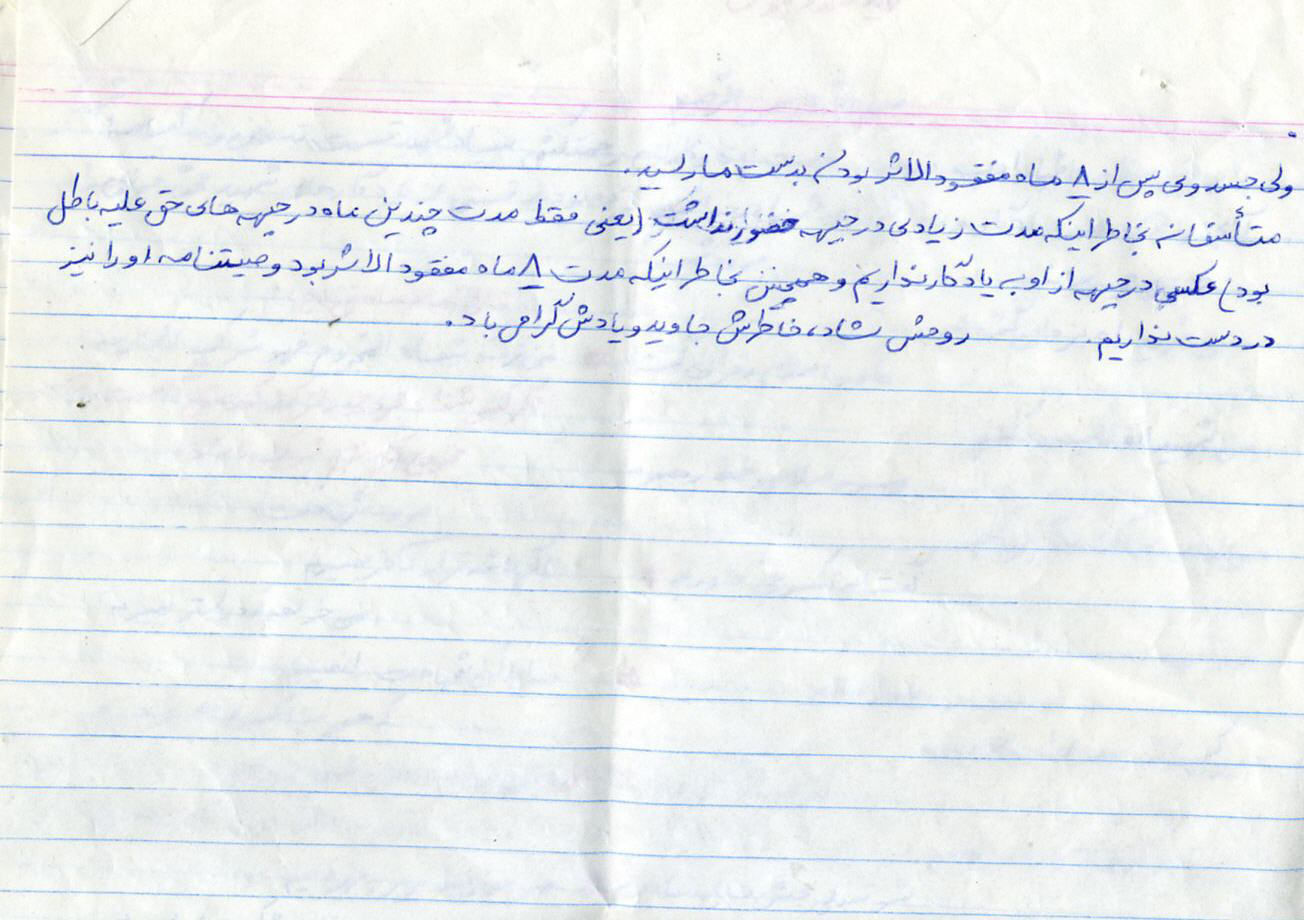 ولی جسد وی پس از ۸ ماه مفقودالاثر بودن بدست ما رسید.
متأسفانه بخاطر اینکه مدت زیادی در جبهه حضور نداشت (یعنی فقط مدت چندین ماه در جبهه های حق علیه باطل
بود) عکسی در جبهه از او به یادگار نداریم و همچنین بخاطر اینکه مدت ۸ ماه مفقودالاثر بود وصیتنامه او را نیز
در دست نداریم. روحش شاد، خاطرش جاوید و یادش گرامی باد.